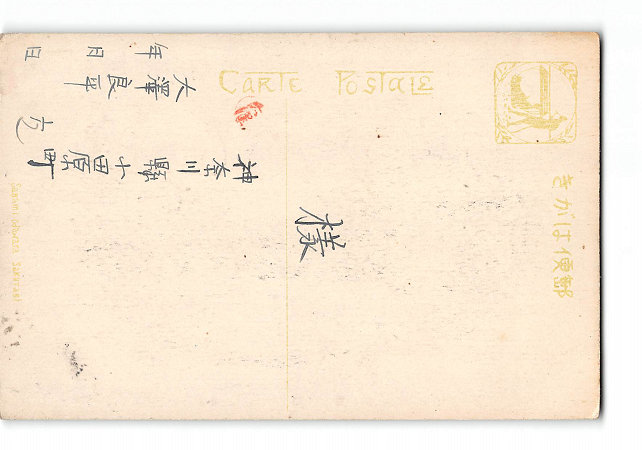 CARTE POSTALE
きがは便郵
様
神奈川縣小田原町
大澤良平
年 月 日